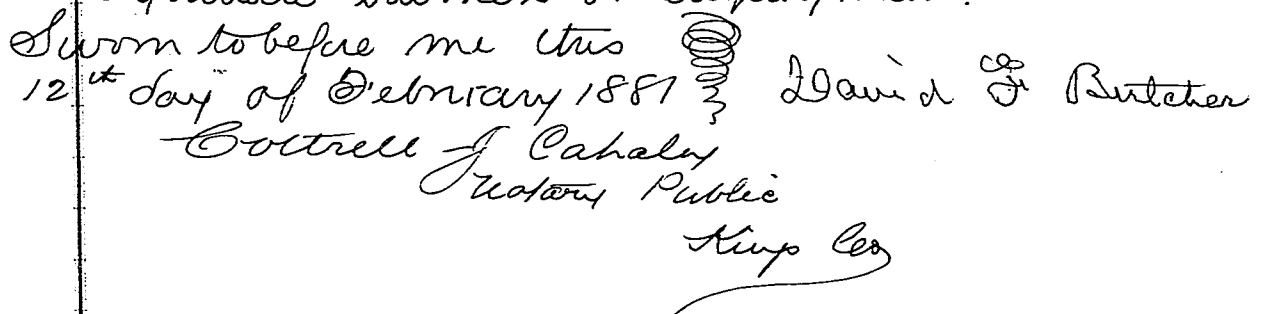 Sworn to before me this
12th day of February 1881 David F Butcher
Cottrell J Cahaley
Notary Public
Kings Co